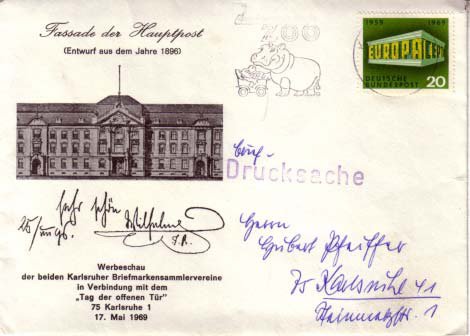 Fassade der Hauptpost
(Entwurf aus dem Jahre 1896)
ZOO
1959 1969
EUROPA CEPT
DEUTSCHE
BUNDESPOST 20
Brief-
Drucksache
sehr schön
Wilhelm
25/
Werbeschau
der beiden Karlsruher Briefmarkensammlervereine
in Verbindung mit dem
„Tag der offenen Tür"
75 Karlsruhe 1
17. Mai 1969
Herrn
Hubert Pfeiffer
75 Karlsruhe 41
Steinmetzstr. 1